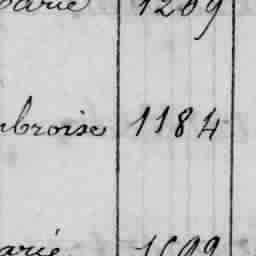 arie 1209
mbroise 1184
arie 1699